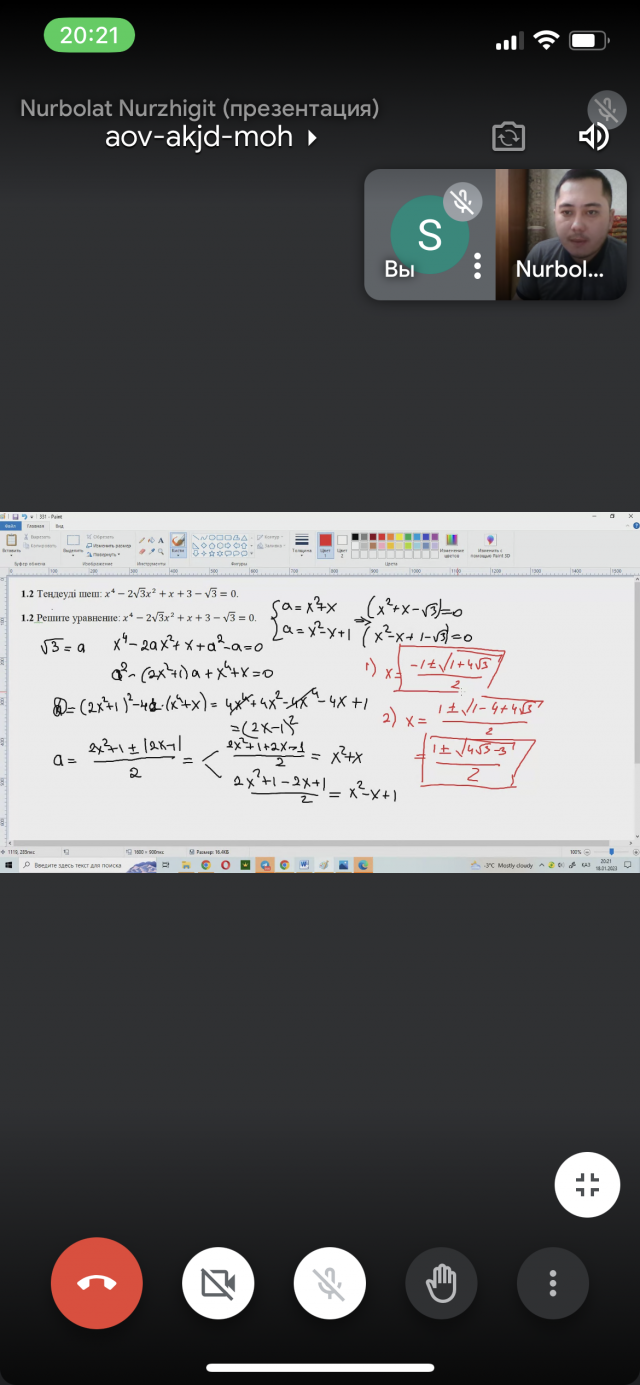 20:21
Nurbolat Nurzhigit (презентация)
aov-akjd-moh
S
Вы
Nurbol...
331 - Paint
Файл Главная Вид
Вставить
Вырезать
Копировать
Выделить
Обрезать
Изменить размер
Повернуть
Кисти
Контур
Заливка
Толщина
Цвет 1
Цвет 2
Изменение цветов
Изменить с помощью Paint 3D
Буфер обмена Изображение Инструменты Фигуры Цвета
1.2 Теңдеуді шеш: x⁴ − 2√3x² + x + 3 − √3 = 0.
1.2 Решите уравнение: x⁴ − 2√3x² + x + 3 − √3 = 0.
√3 = a x⁴ − 2ax² + x + a² − a = 0
a² − (2x²+1)a + x⁴ + x = 0
D = (2x²+1)² − 4·(x⁴+x) = 4x⁴ + 4x² − 4x⁴ − 4x + 1
= (2x−1)²
a = (2x²+1 ± |2x−1|)/2 =
(2x²+1+2x−1)/2 = x²+x
(2x²+1−2x+1)/2 = x²−x+1
{ a = x²+x
a = x²−x+1
⇒ (x²+x−√3)=0
(x²−x+1−√3)=0
1) x = (−1±√(1+4√3))/2
2) x = (1±√(1−4+4√3))/2
= (1±√(4√3−3))/2
1119, 235пкс
1600 × 900пкс
Размер: 16.4КБ
100%
Введите здесь текст для поиска
-3°C Mostly cloudy
ҚАЗ
20:21
18.01.2023